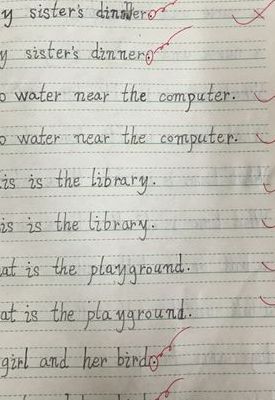 y sister's dinner.
y sister's dinner.
o water near the computer.
o water near the computer.
is is the library.
is is the library.
at is the playground.
at is the playground.
girl and her bird.